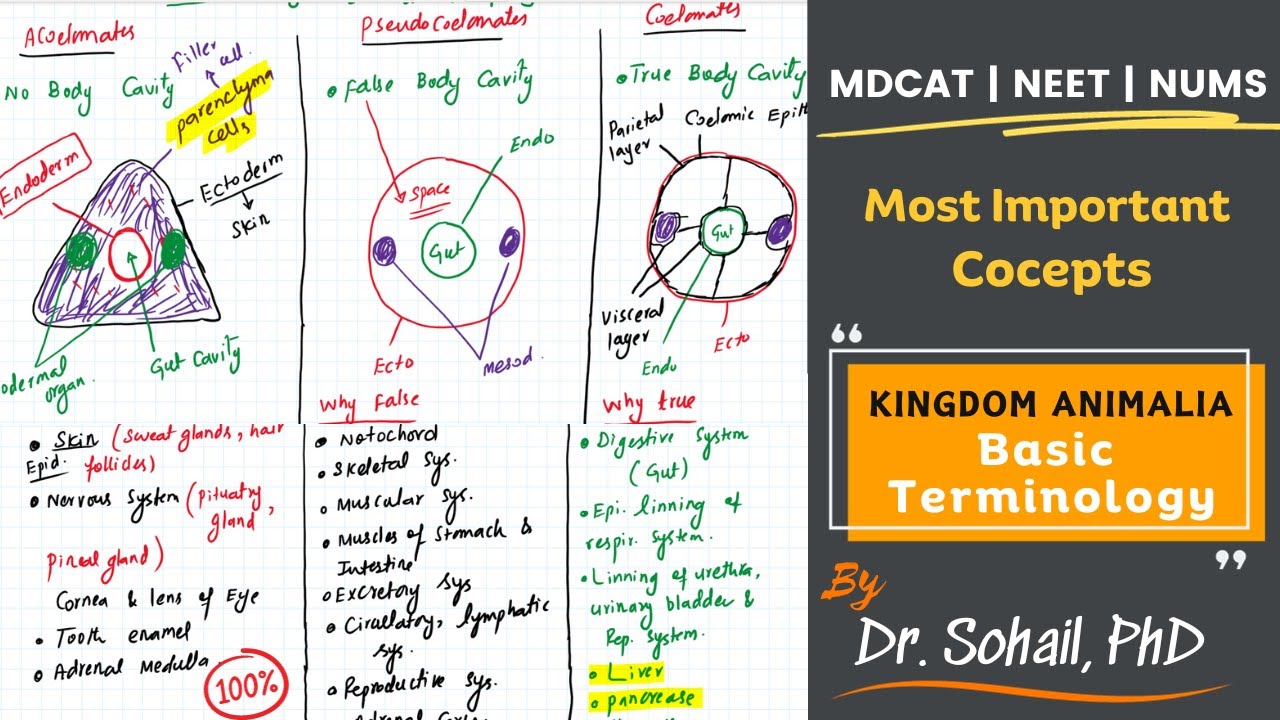 Acoelomates
No Body Cavity
Filler cell.
parenclyma
cells
Endoderm
Ectoderm
Skin
Gut Cavity
odermal
organ.
Pseudocoelomates
• False Body Cavity
Endo
Space
Gut
Ecto
Mesod.
Why False
Coelomates
• True Body Cavity
Parietal
layer
Coelomic Epith
Gut
Visceral
layer
Endo
Ecto
Why true
• Skin (Sweat glands, hair
Epid. follides)
• Nervous System (Pituatry
gland,
Pineal gland)
Cornea & lens of Eye
• Tooth enamel
• Adrenal Medulla
100%
• Notochord
• Skeletal Sys.
• Muscular sys.
• Muscles of Stomach &
Intestine
• Excretory sys
• Circulatory, lymphatic
sys.
• Reproductive sys.
• Digestive System
(Gut)
• Epi. linning of
respir. system.
• Linning of urethra,
urinary bladder &
Rep. system.
• Liver
• pancrease
MDCAT | NEET | NUMS
Most Important
Cocepts
“
KINGDOM ANIMALIA
Basic
Terminology
”
By
Dr. Sohail, PhD